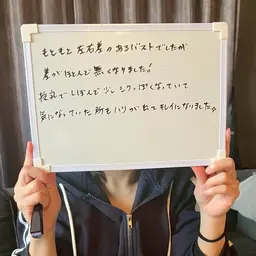 もともと左右差のあるバストでしたが
差がほとんど無くなりました!
授乳でしぼんで少しシワっぽくなっていて
気になっていた所もハリが出てキレイになりました。